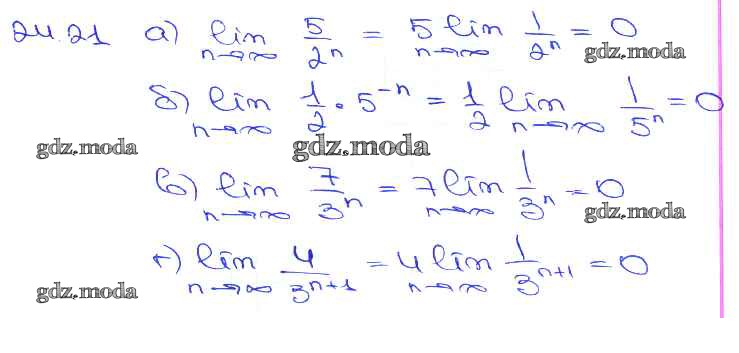 24.21 а) lim n→∞ 5/2ⁿ = 5 lim n→∞ 1/2ⁿ = 0
gdz.moda
б) lim n→∞ 1/2 · 5⁻ⁿ = 1/2 lim n→∞ 1/5ⁿ = 0
gdz.moda gdz.moda
в) lim n→∞ 7/3ⁿ = 7 lim n→∞ 1/3ⁿ = 0
gdz.moda
г) lim n→∞ 4/3ⁿ⁺¹ = 4 lim n→∞ 1/3ⁿ⁺¹ = 0
gdz.moda